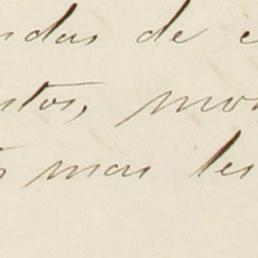 ndas de e
ntos, mo
mas les